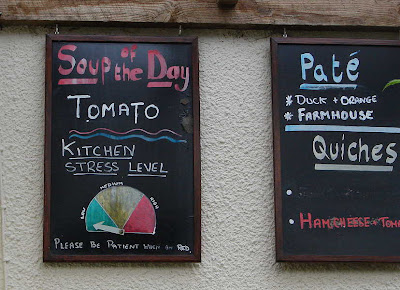 Soup of the Day
TOMATO
KITCHEN
STRESS LEVEL
LOW
MEDIUM
HIGH
PLEASE BE PATIENT WHEN IN RED
Paté
* DUCK + ORANGE
* FARMHOUSE
Quiches
•
• HAM CHEESE + TOMA